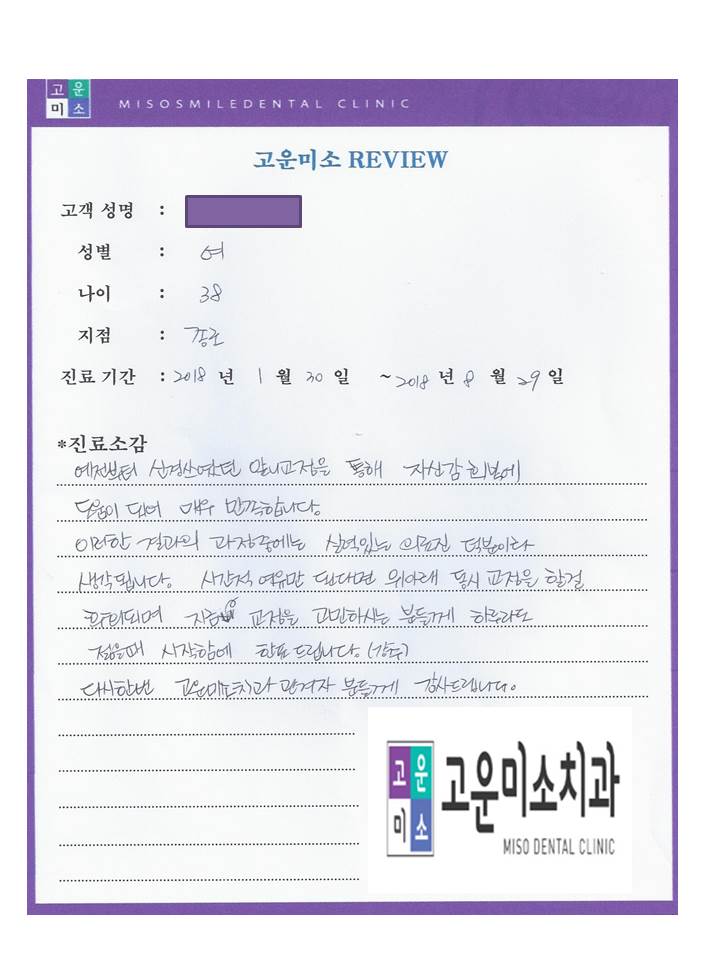 고운
미소
MISOSMILEDENTAL CLINIC
고운미소 REVIEW
고객 성명 :
성별 : 여
나이 : 38
지점 : 종로
진료 기간 : 2018 년 1 월 30 일 ~ 2018 년 8 월 29 일
*진료소감
예전부터 신경쓰였던 앞니교정을 통해 자신감 회복에
도움이 되어 매우 만족합니다.
이러한 결과의 과정중에는 실력있는 의료진 덕분이라
생각됩니다. 시간적 여유만 된다면 위아래 동시 교정을 할걸
후회되며 지금 교정을 고민하시는 분들께 하루라도
젊을때 시작함에 한표 드립니다. (강추)
다시한번 고운미소치과 관계자 분들께 감사드립니다.
고운
미소
고운미소치과
MISO DENTAL CLINIC